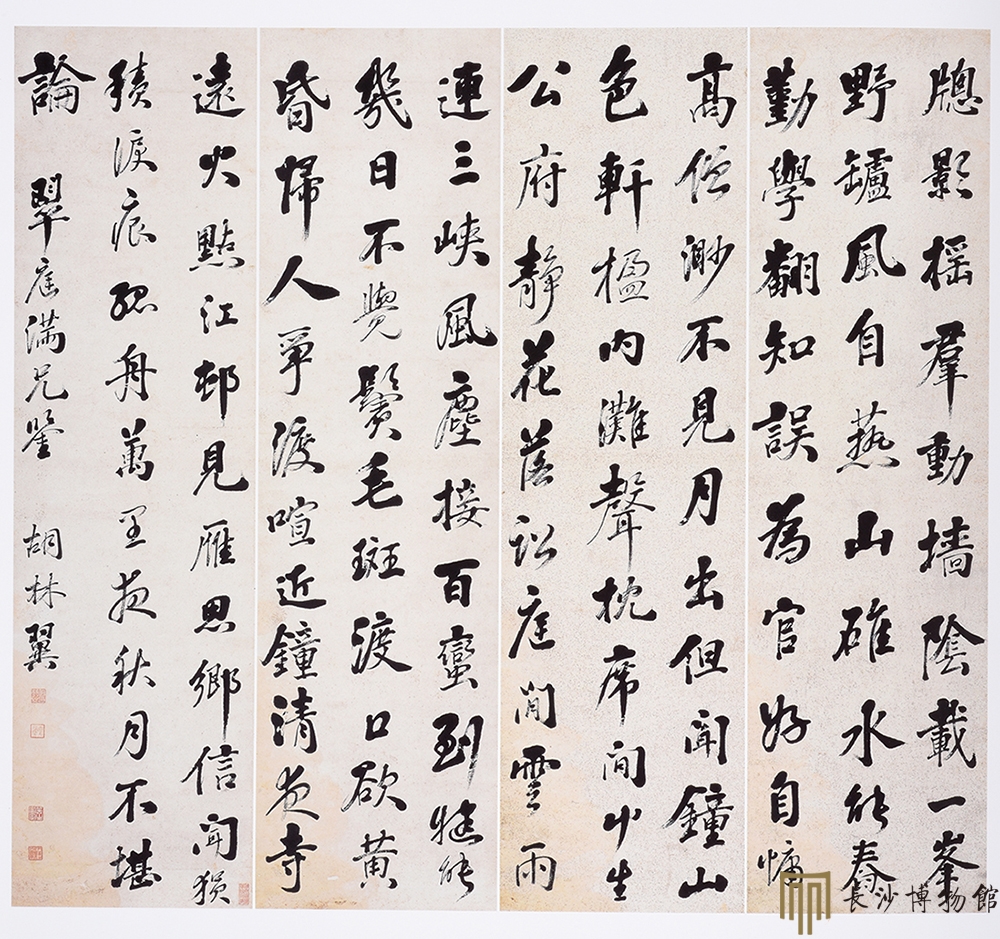 牕影摇羣動墙陰載一峯
野罏風自爇山碓水能舂
勤學翻知誤為官好自慵
高僧渺不見月出但聞鐘山
色軒楹內灘聲枕席間艸生
公府静花落訟庭閒雲雨
連三峽風塵接百蠻到能
幾日不覺鬢毛斑渡口欲黄
昏歸人爭渡喧近鐘清夜寺
遠火點江邨見雁思鄉信聞猨
積淚痕孤舟萬里夜秋月不堪
論 翠庭滿兄鑒 胡林翼
長沙博物館